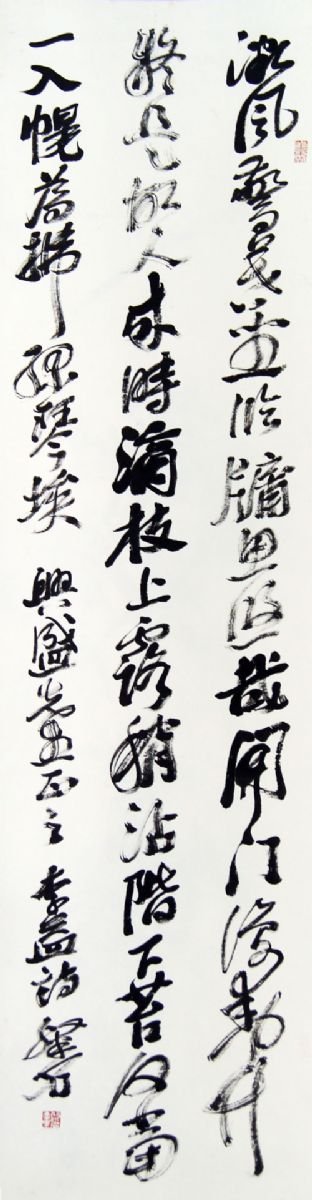 微風驚暮坐臨牖思悠哉開門復動竹
疑是故人來時滴枝上露稍沾階下苔何當
一入幌為拂綠琴埃 興盛先生正之 李益詩